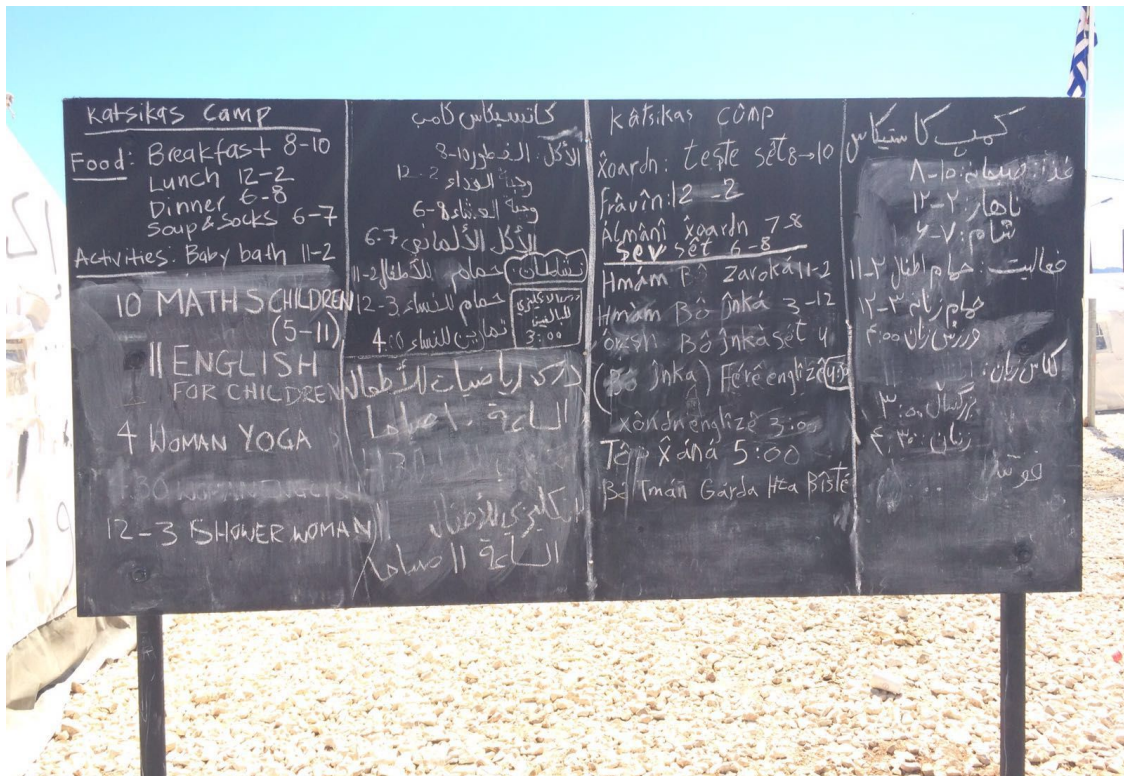 Katsikas Camp
Food: Breakfast 8-10
Lunch 12-2
Dinner 6-8
Soup & Socks 6-7
Activities: Baby bath 11-2
10 MATHS CHILDREN
(5-11)
11 ENGLISH
FOR CHILDREN
4 WOMAN YOGA
4:30 WOMAN ENGLISH
12-3 SHOWER WOMAN
كاتسيكاس كامب
الأكل: الفطور 10-8
وجبة الغداء 2-12
وجبة العشاء 8-6
الأكل الألماني 7-6
نشاطات:
حمام للأطفال 2-11
حمام للنساء 3-12
تمارين للنساء 4:00
للبالغين
3:00
رياضيات للأطفال
الساعة 10 صباحا
انكليزي للأطفال
الساعة 11 صباحا
Katsikas CÔmp
Xoardn: teşte sêt 8→10
Fravîn: 12-2
Almânî xoardn 7-8
şev sêt 6-8
Hmám Bô Zaroká 11-2
Hmàm Bô Jnká 3-12
Bô Jnkà sét 4
(Bô Jnka) Féré englizê
xôndn englizê 3:00
Xáná 5:00
Bô Tmán Garda Hta Bîstê
کمپ کاستیکاس
غذا: صبحانه: ۱۰-۸
ناهار: ۲-۱۲
شام: ۷-۶
فعالیت: حمام اطفال ۲-۱۱
حمام زنانه ۳-۱۲
ورزش زنان ۴:۰۰
کلاس زبان:
بزرگسال ۳:۰۰
زنان ۴:۳۰